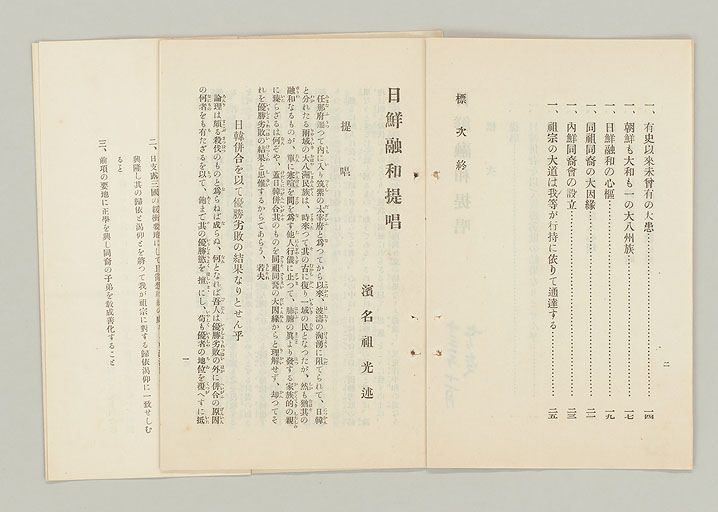 一、有史以來未曾有の大患…………一四
一、朝鮮も大和も一の大八州族…………一七
一、日鮮融和の心樞…………一九
一、同祖同裔の大因縁…………二一
一、內鮮同裔會の設立…………二三
一、祖宗の大道は我等が行持に依りて通達する…………二五
標次終
二
日鮮融和提唱
濱名祖光述
提唱
任那府つて內に入り筑紫の太宰府と爲つてから以來、波濤の洶湧に阻てられて、日韓
と分れたる兩域の大八洲民族は、時來つて其の古に復り一域の民となつたが、然も猶其の
融和なるものが、單に寒暄を問を爲す他人行儀に止つて、肺腑の眞より發する家族的の親
に臻らざるは何ぞや、蓋日韓併合其のものを同祖同裔の大因緣からと理解せず、却つてそ
れを優勝劣敗の結果と思惟するからであらう、若夫
日韓併合を以て優勝劣敗の結果なりとせん乎
論理は頗る殺伐のものと爲らねば成らぬ、何となれば吾人は優勝劣敗の外に併合の原因
の何者をも有たざるを以て、飽まで其の優勝慾を擅にし、苟も優者の地位を覆へすに抵
一
二、日支露三國の緩衝要地にして
興隆し其の歸依と渴仰とを將つて我が祖宗に對する歸依渴仰に一致せしむ
ること
三、前項の要地に正學を興し同裔の子弟を敎成善化すること